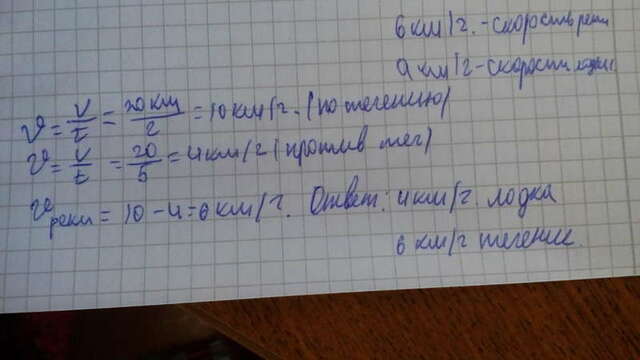 6 км/ч. - скорость реки
4 км/ч - скорость лодки
V = V/t = 20 км/2 = 10 км/ч. (по течению)
V = V/t = 20/5 = 4 км/ч (против теч)
V реки = 10 - 4 = 6 км/ч. Ответ: 4 км/ч. лодка
6 км/ч течение.